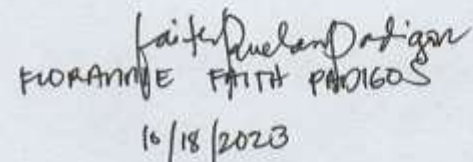 FLORANNIE FAITH PADIGOS
10/18/2023